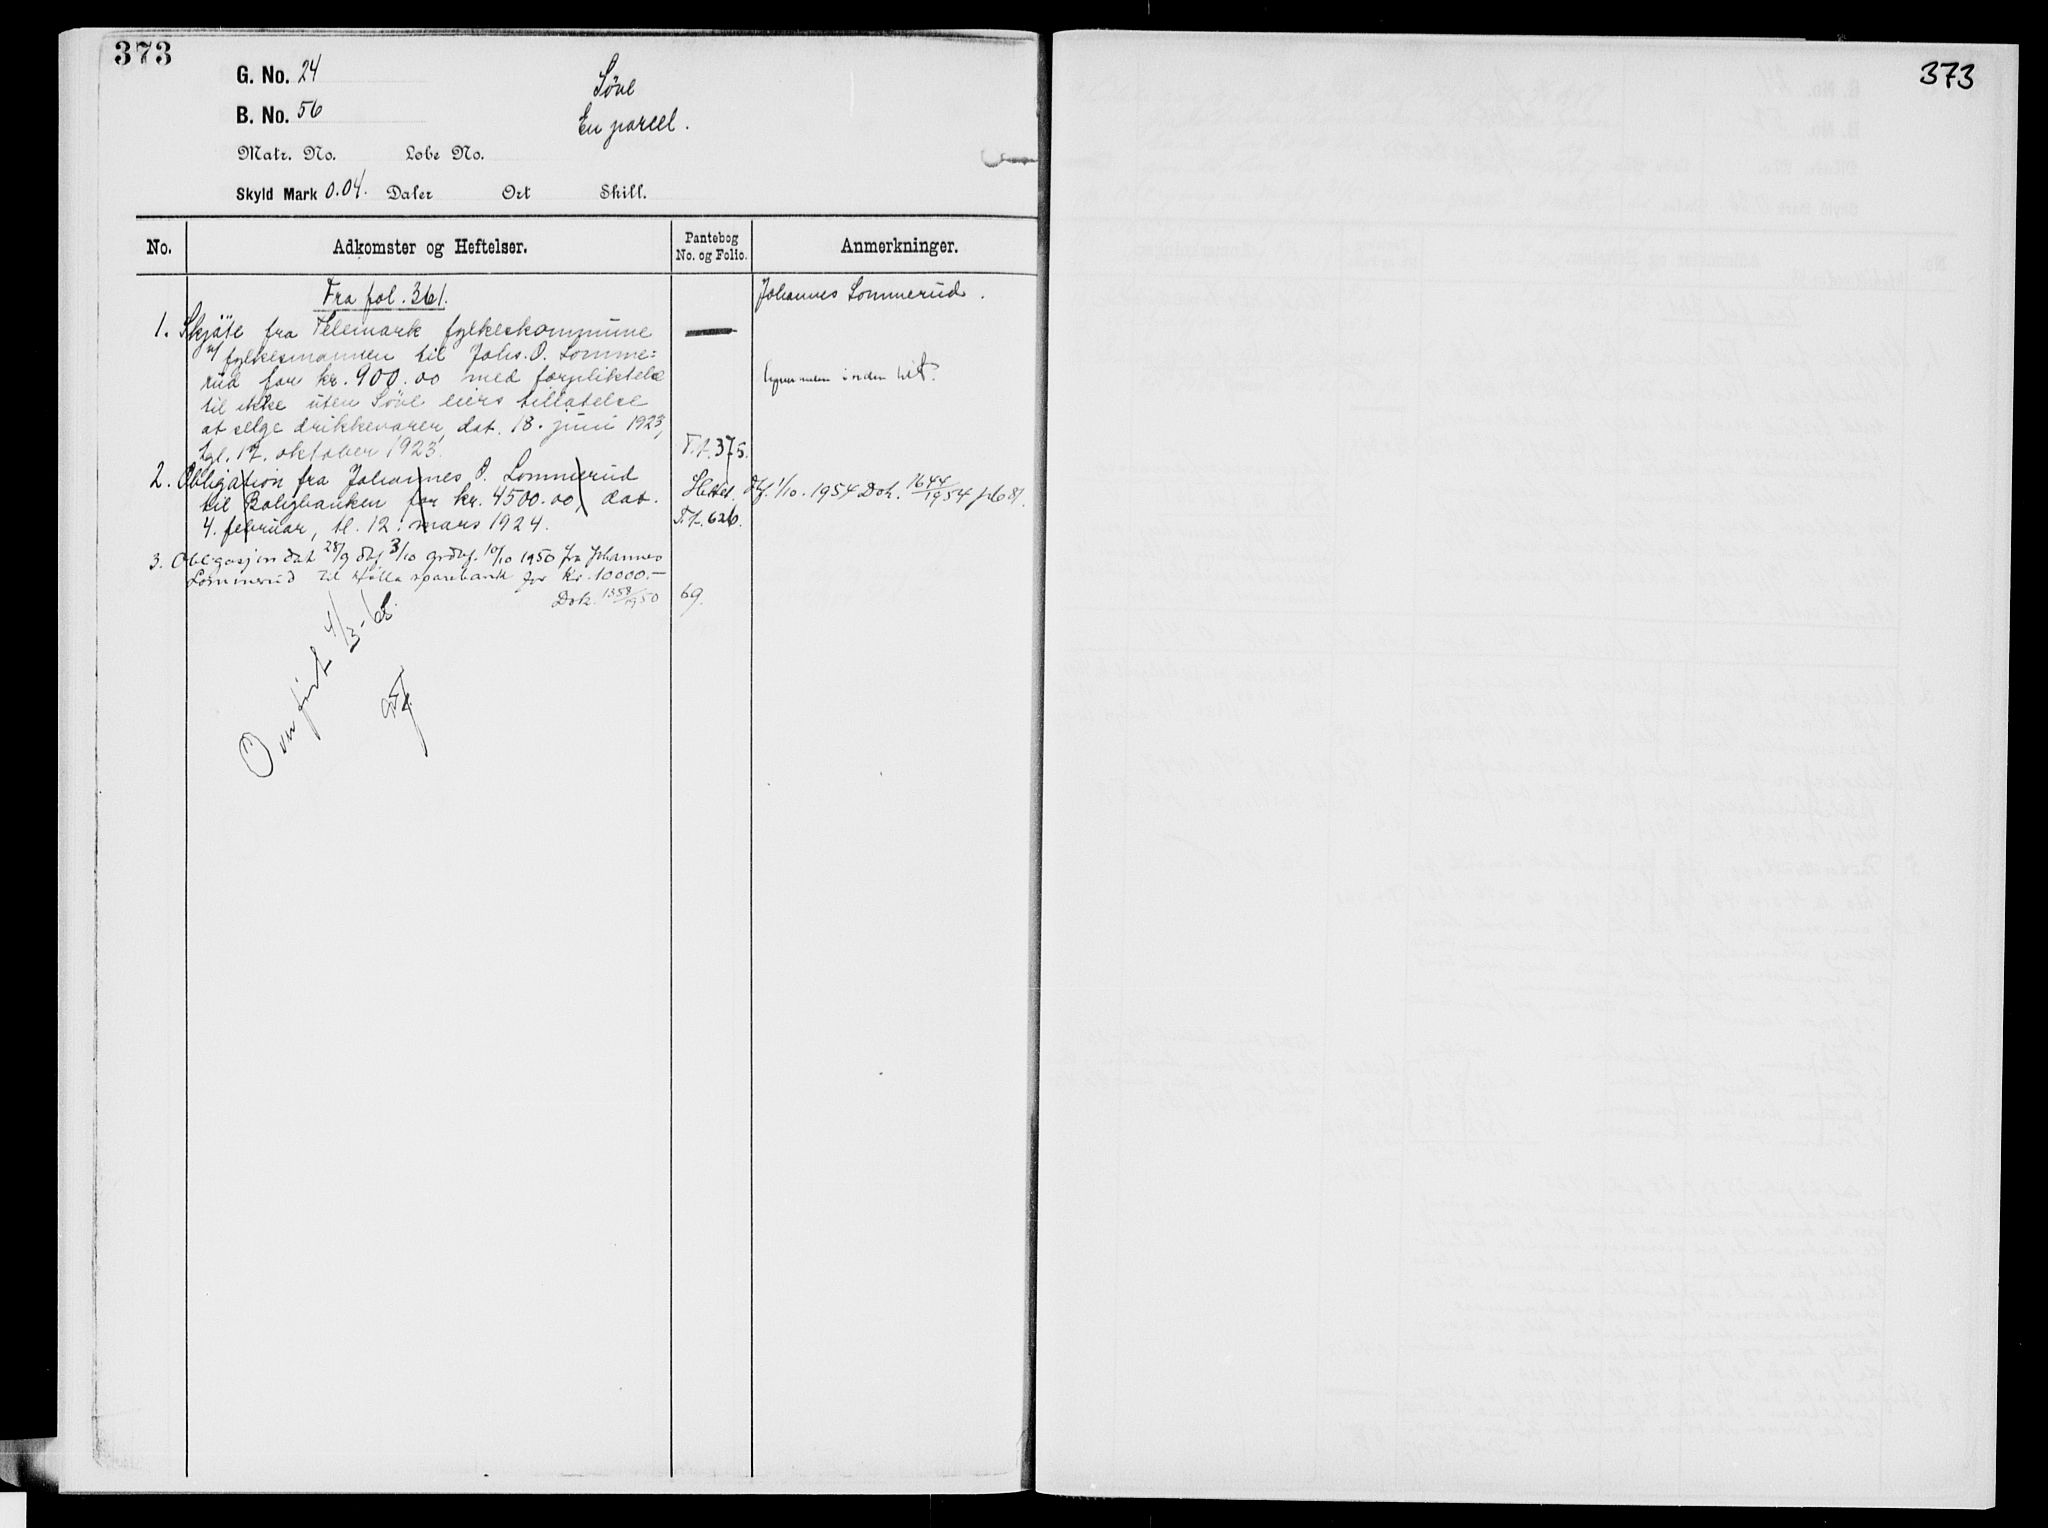 373
G. No. 24
Søve
B. No. 56
En parcel.
Matr. No. Løbe No.
Skyld Mark 0.04. Daler Ort Skill.
No. Adkomster og Heftelser. Pantebog No. og Folio. Anmerkninger.
Fra fol. 361.
Johannes Lommerud.
1. Skjøte fra Telemark fylkeskommune
v/ fylkesmannen til Johs. O. Lomme=
rud for kr. 900.00 med forpliktelse
til ikke uten Søve eiers tillatelse
at selge drikkevarer, dat. 18. juni 1923,
tgl. 17. oktober 1923. T.f. 375.
2. Obligation fra Johannes O. Lommerud
til Boligbanken for kr. 4500.00, dat. Slettet dbf. 1/10. 1954 Dok. 1644/1954 pb 81.
4. februar, tl. 12. mars 1924. T.f. 626.
3. Obligasjon dat 28/9 dbf 3/10 grdbf. 10/10 1950 fra Johannes
Lommerud til Holla sparebank for kr. 10000.—
Dok. 1358/1950 69.
Overført 4/3-68.
373